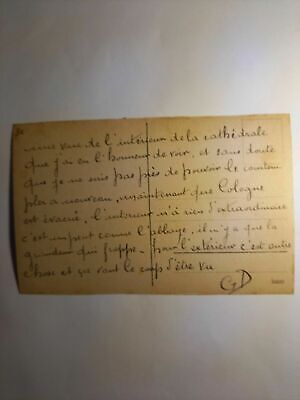 une vue de l'intérieur de la cathédrale
que j'ai eu l'honneur de voir, et sans doute
que je ne suis pas près de pouvoir le contem
pler à nouveau, maintenant que Cologne
est évacué, l'intérieur n'a rien d'extraordinaire
c'est comme l'abbaye, il n'y a que la
grandeur qui frappe. pour l'extérieur c'est autre
chose et ça vaut le coup d'être vu
GD